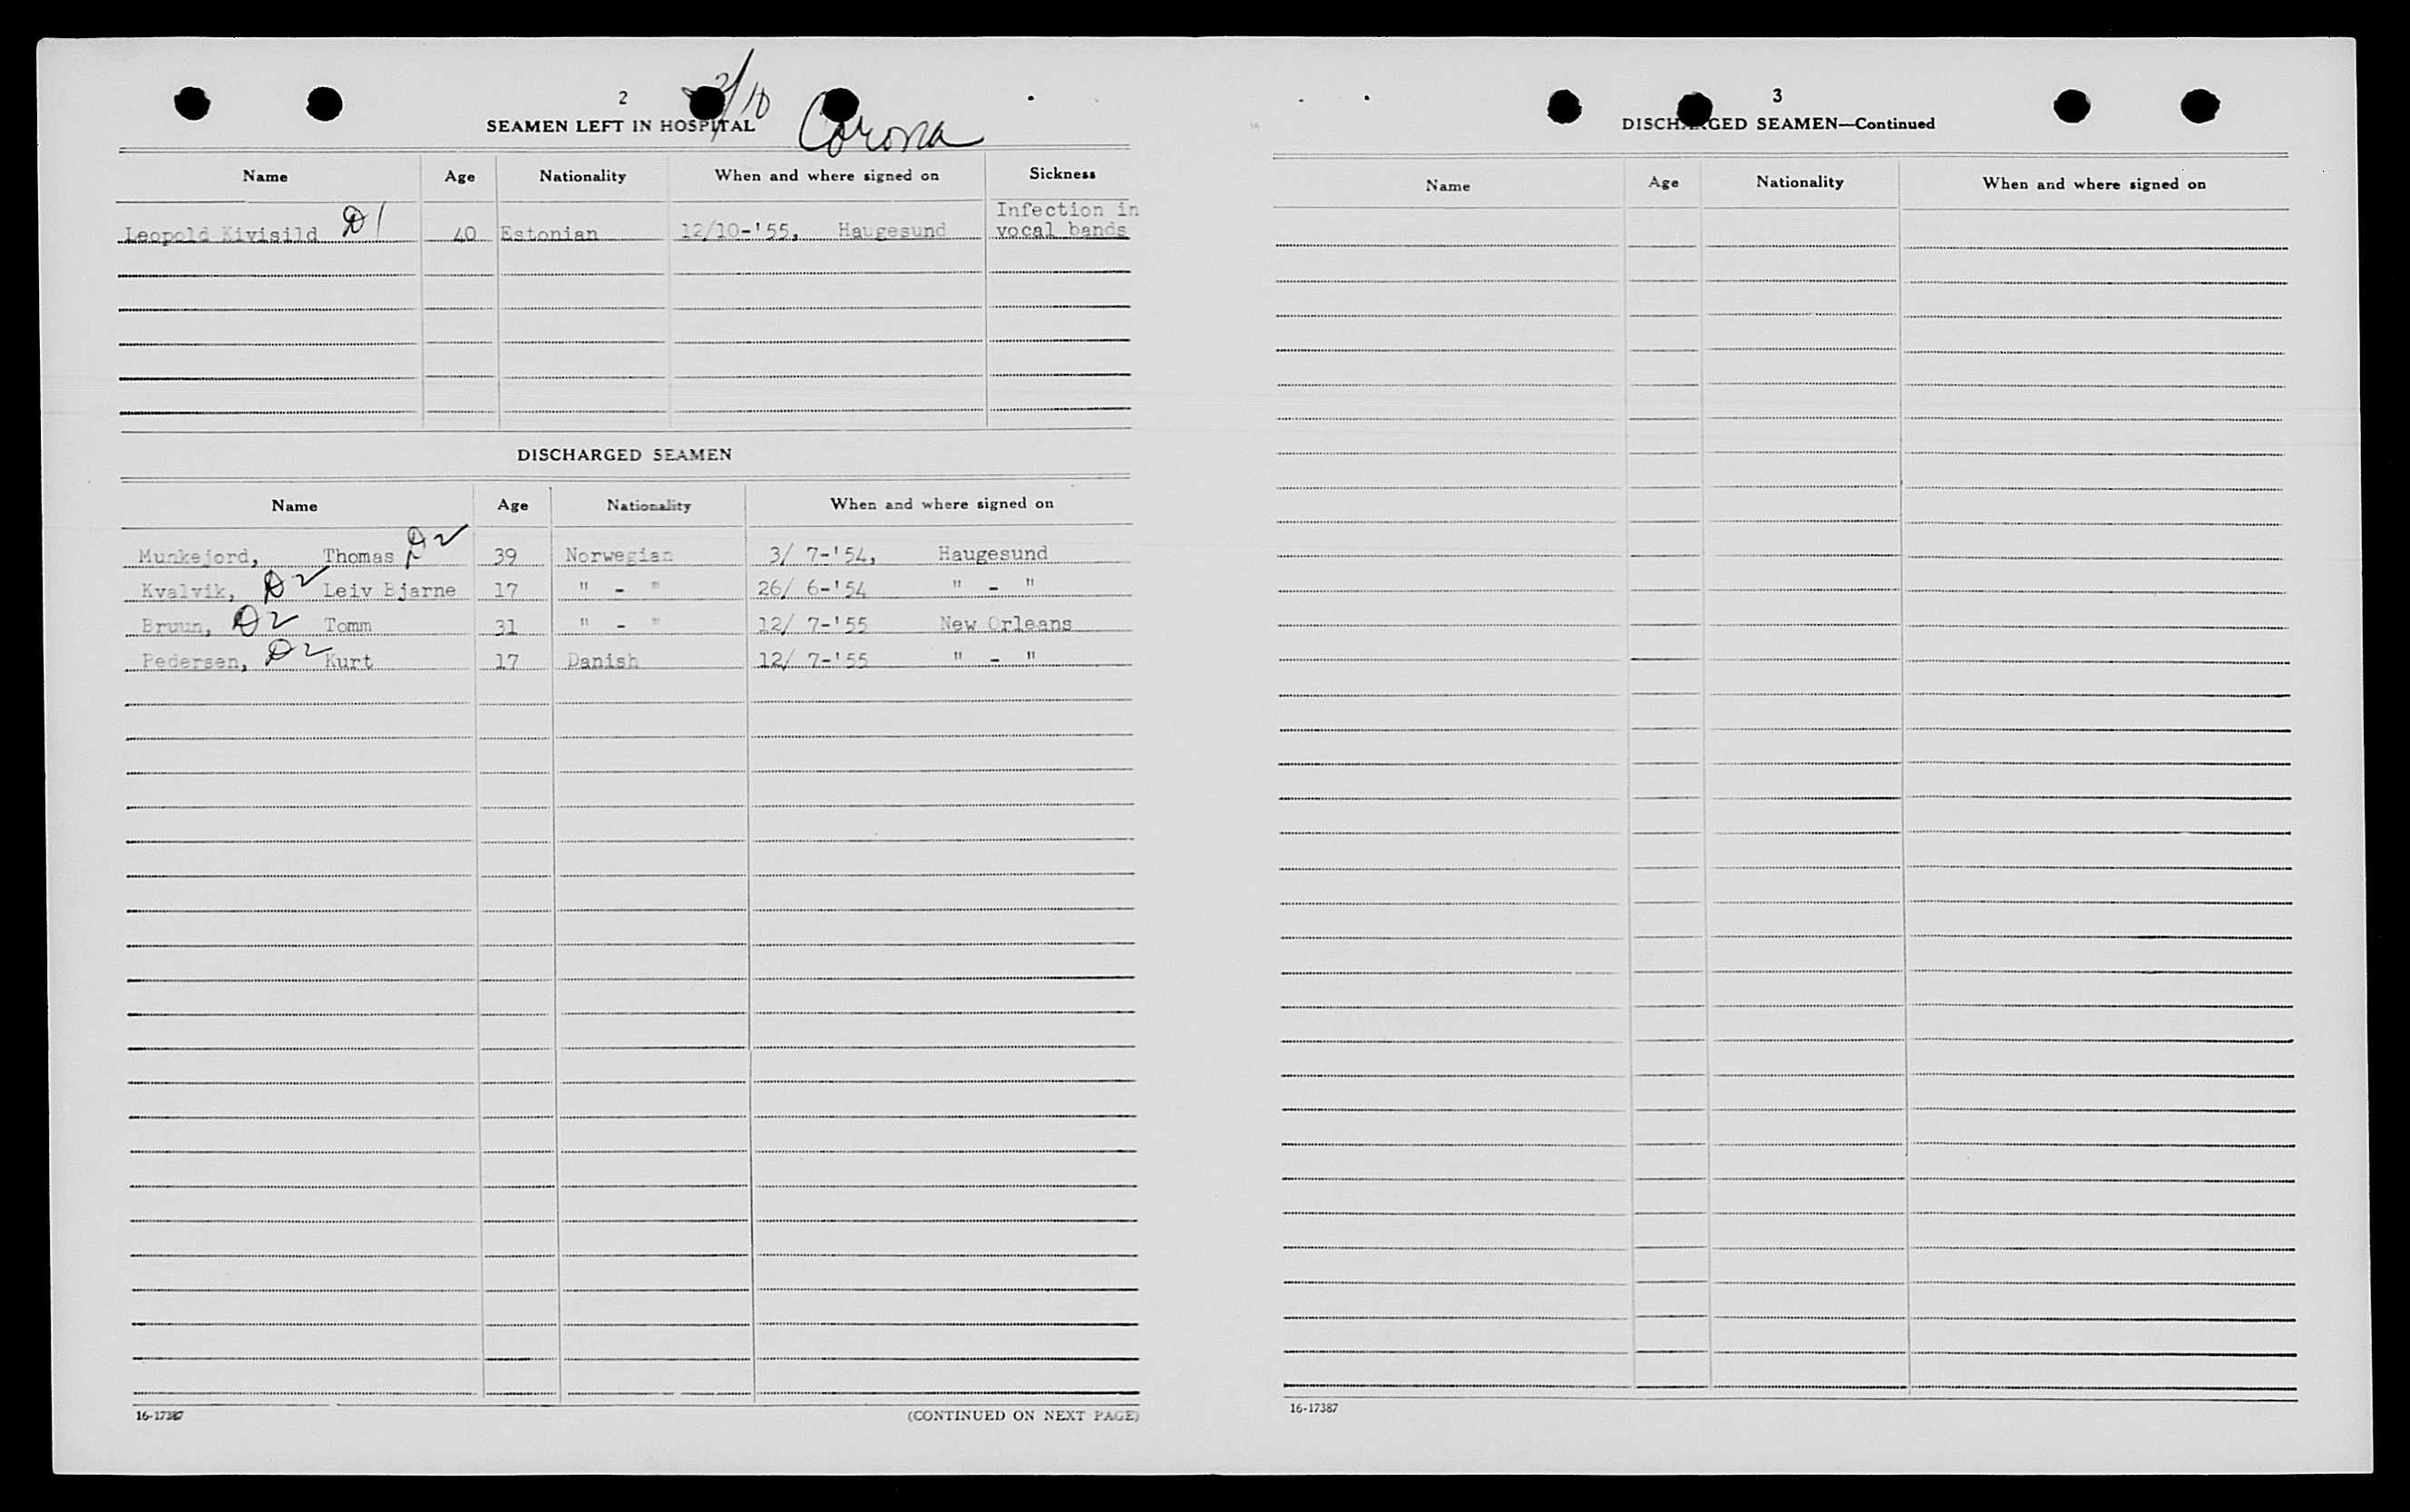 2
2/10 Corona
SEAMEN LEFT IN HOSPITAL
Name Age Nationality When and where signed on Sickness
Leopold Kivisild D1 40 Estonian 12/10-'55, Haugesund Infection in
vocal bands
DISCHARGED SEAMEN
Name Age Nationality When and where signed on
Munkejord, Thomas D2 39 Norwegian 3/ 7-'54, Haugesund
Kvalvik, D2 Leiv Bjarne 17 " - " 26/ 6-'54 " - "
Bruun, D2 Tomm 31 " - " 12/ 7-'55 New Orleans
Pedersen, D2 Kurt 17 Danish 12/ 7-'55 " - "
16-17387 (CONTINUED ON NEXT PAGE)
3
DISCHARGED SEAMEN—Continued
Name Age Nationality When and where signed on
16-17387